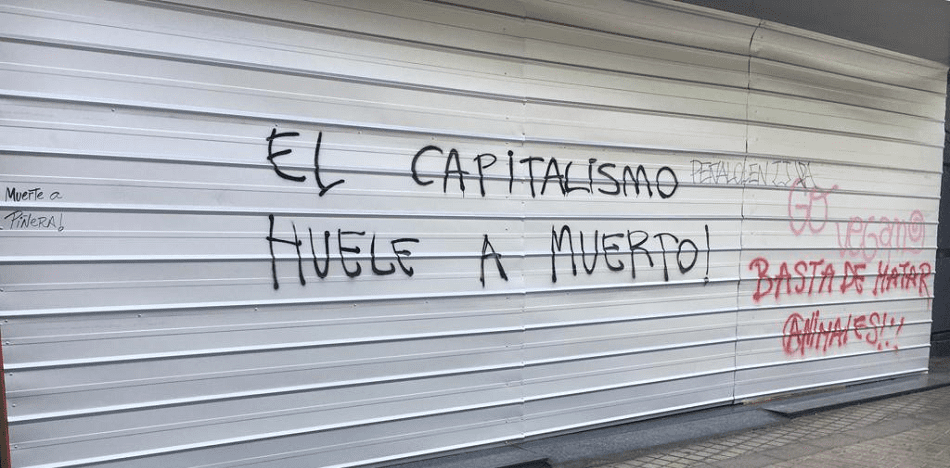 Muerte a
Piñera!
EL CAPITALISMO
HUELE A MUERTO!
GO
vegano
BASTA DE MATAR
ANIMALES!!!